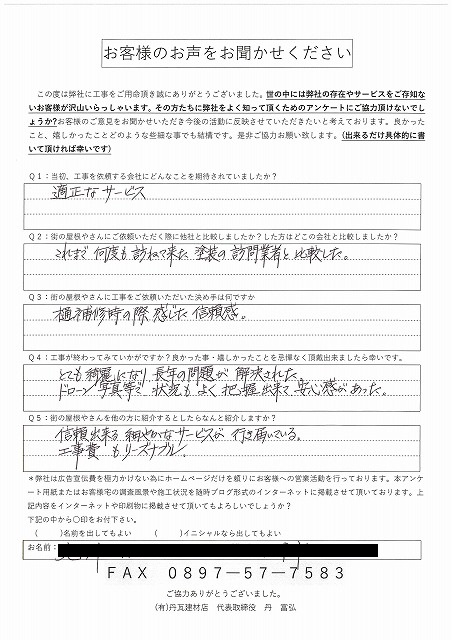 お客様のお声をお聞かせください
この度は弊社に工事をご用命頂き誠にありがとうございました。世の中には弊社の存在やサービスをご存知な
いお客様が沢山いらっしゃいます。その方たちに弊社をよく知って頂くためのアンケートにご協力頂けないでし
ょうか?お客様のご意見をお聞かせいただき今後の活動に反映させていただきたいと考えております。良かった
こと、嬉しかったことどのような些細な事でも結構です。是非ご協力お願い致します。(出来るだけ具体的に書
いて頂ければ幸いです)
Q1:当初、工事を依頼する会社にどんなことを期待されていましたか?
適正なサービス
Q2:街の屋根やさんにご依頼いただく際に他社と比較しましたか?した方はどこの会社と比較しましたか?
これまで何度も訪ねて来た塗装の訪問業者と比較した。
Q3:街の屋根やさんに工事をご依頼いただいた決め手は何ですか
樋補修時の際感じた信頼感。
Q4:工事が終わってみていかがですか?良かった事・嬉しかったことを忌憚なく頂戴出来ましたら幸いです。
とても綺麗になり、長年の問題が解決された。
ドローン写真等で状況もよく把握出来て安心感があった。
Q5:街の屋根やさんを他の方に紹介するとしたらなんと紹介しますか?
信頼出来る細やかなサービスが行き届いている。
工事費もリーズナブル。
*弊社は広告宣伝費を極力かけない為にホームページだけを頼りにお客様への営業活動を行っております。本アンケ
ート用紙またはお客様宅の調査風景や施工状況を随時ブログ形式のインターネットに掲載させて頂いております。上
記内容をインターネットや印刷物に掲載させて頂いてもよろしいでしょうか?
下記の中から〇印をお付下さい。
( )名前を出してもよい ( )イニシャルなら出してもよい
お名前:
FAX 0897-57-7583
ご協力ありがとうございました。
(有)丹瓦建材店 代表取締役 丹 富弘